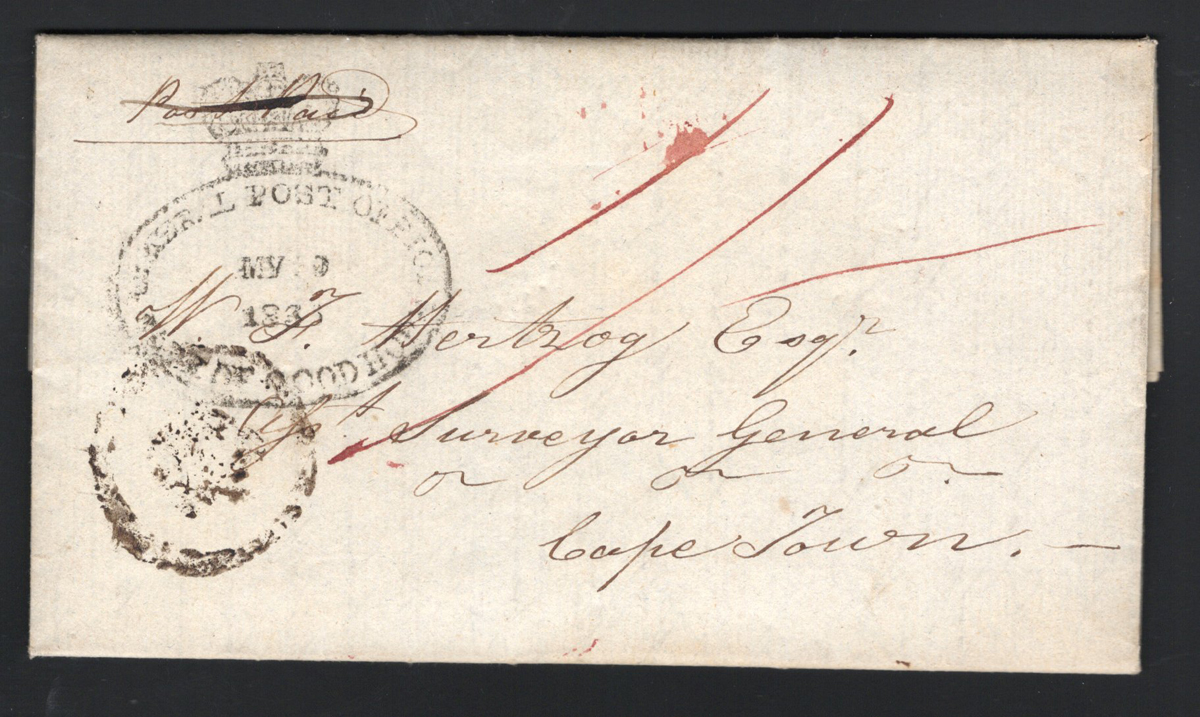 Post Paid
GENERAL POST OFFICE
MY 9
183
OF GOOD HOPE
W. F. Hertzog Esqr.
Asst Surveyor General
Cape Town. —